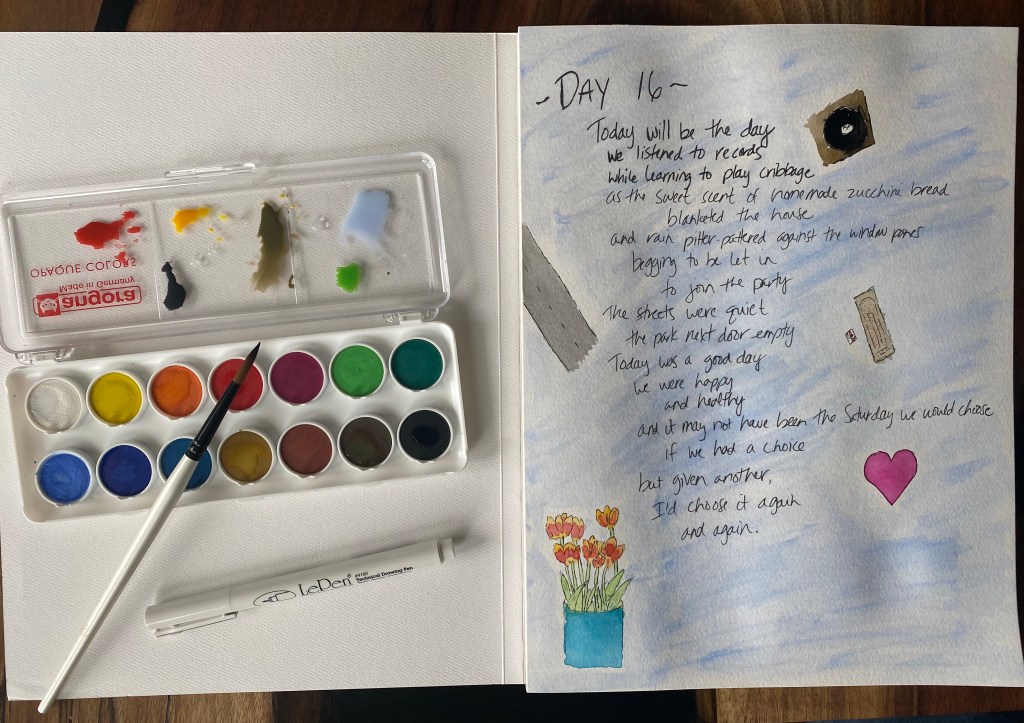 OPAQUE COLORS
Made in Germany
angora
LePen
#4100
Technical Drawing Pen
~DAY 16~
Today will be the day
we listened to records
while learning to play cribbage
as the sweet scent of homemade zucchini bread
blanketed the house
and rain pitter-pattered against the window panes
begging to be let in
to join the party
The streets were quiet
the park next door empty
Today was a good day
we were happy
and healthy
and it may not have been the Saturday we would choose
if we had a choice
but given another,
I'd choose it again
and again.